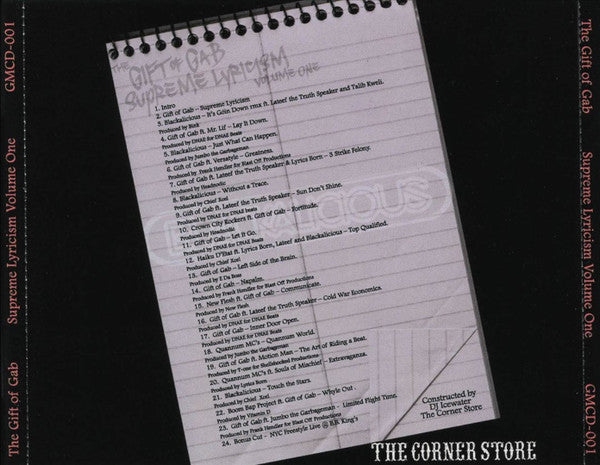 THE GIFT OF GAB
SUPREME LYRICISM
VOLUME ONE
1. Intro
2. Gift of Gab – Supreme Lyricism
3. Blackalicious – It's Goin Down rmx ft. Lateef the Truth Speaker and Talib Kweli.
Produced by
4. Gift of Gab ft. Mr. Lif – Lay It Down.
Produced by DNAE for DNAE Beats
5. Blackalicious – Just What Can Happen.
Produced by Jumbo the Garbageman
6. Gift of Gab ft. Versatyle – Greatness.
Produced by Frank Hendler for Blast Off Productions
7. Gift of Gab ft. Lateef the Truth Speaker & Lyrics Born – 3 Strike Felony.
Produced by Headnodic
8. Blackalicious – Without a Trace.
Produced by Chief Xcel
9. Gift of Gab ft. Lateef the Truth Speaker – Sun Don't Shine.
Produced by DNAE for DNAE beats
10. Crown City Rockers ft. Gift of Gab – Fortitude.
Produced by Headnodic
11. Gift of Gab – Let It Go.
Produced by DNAE for DNAE Beats
12. Haiku D'Etat ft. Lyrics Born, Lateef and Blackalicious – Top Qualified.
Produced by Chief Xcel
13. Gift of Gab – Left Side of the Brain.
Produced by E Da Boss
14. Gift of Gab – Napalm.
Produced by Frank Hendler for Blast Off Productions
15. New Flesh ft. Gift of Gab – Communicate.
Produced by New Flesh
16. Gift of Gab ft. Lateef the Truth Speaker – Cold War Economics.
Produced by DNAE for DNAE Beats
17. Gift of Gab – Inner Door Open.
Produced by DNAE for DNAE Beats
18. Quannum MC's – Quannum World.
Produced by Jumbo the Garbageman
19. Gift of Gab ft. Motion Man – The Art of Riding a Beat.
Produced by T-one for Shellshocked Productions
20. Quannum MC's ft. Souls of Mischief – Extravaganza.
Produced by Lyrics Born
21. Blackalicious – Touch the Stars.
Produced by Chief Xcel
22. Boom Bap Project ft. Gift of Gab – Whyle Out.
Produced by Vitamin D
23. Gift of Gab ft. Jumbo the Garbageman – Limited Flight Time.
Produced by Frank Hendler for Blast Off Productions
24. Bonus Cut – NYC Freestyle Live @ B.B. King's
BLACKALICIOUS
Constructed by
DJ Icewater
The Corner Store
THE CORNER STORE
The Gift of Gab Supreme Lyricism Volume One GMCD-001
The Gift of Gab Supreme Lyricism Volume One GMCD-001